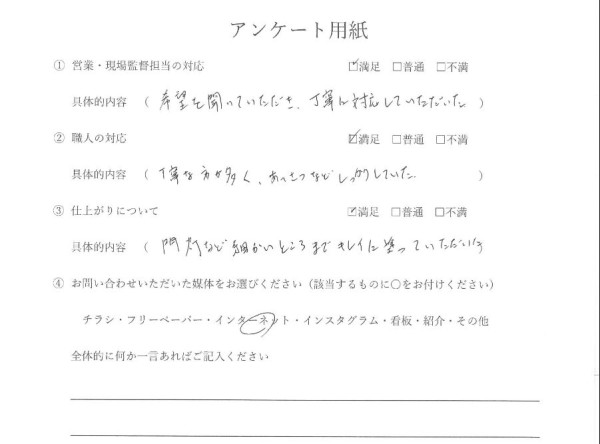 アンケート用紙
① 営業・現場監督担当の対応 ☑満足 □普通 □不満
具体的内容 （ 希望を聞いていただき、丁寧に対応していただいた ）
② 職人の対応 ☑満足 □普通 □不満
具体的内容 （ 丁寧な方が多く、あいさつなどしっかりしていた ）
③ 仕上がりについて ☑満足 □普通 □不満
具体的内容 （ 門柱など細かいところまでキレイに塗っていただいた ）
④ お問い合わせいただいた媒体をお選びください（該当するものに〇をお付けください）
チラシ・フリーペーパー・インターネット・インスタグラム・看板・紹介・その他
全体的に何か一言あればご記入ください